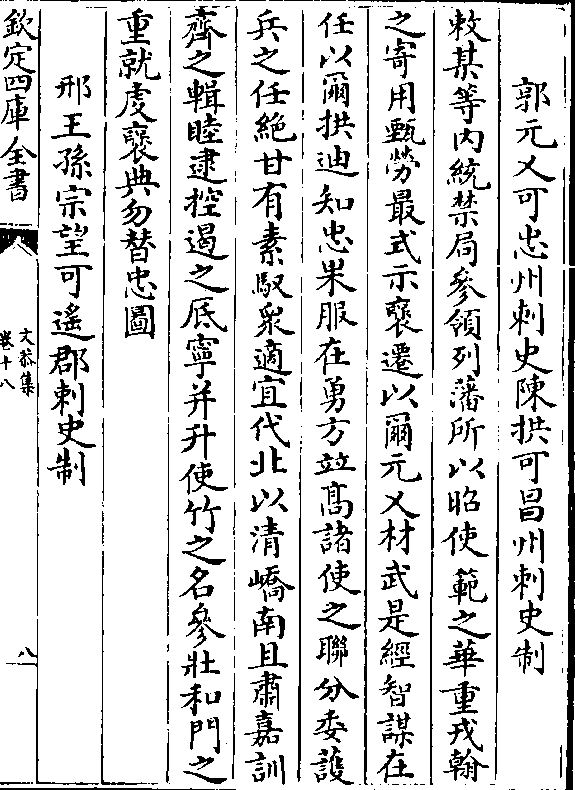 郭元乂可忠州刺史陳拱可昌州刺史制
敕某等内統禁局參領列藩所以昭使範之華重戎翰
之寄用甄勞最式示褒遷以爾元乂材武是經智謀在
任以爾拱迪知忠果服在勇方竝髙諸使之聯分委護
兵之任絶甘有素馭衆適宜代北以清嶠南且肅嘉訓
齊之輯睦逮控遏之厎寧并升使竹之名參壯和門之
重就䖏褒典勿替忠圖
邢王孫宗望可遙郡刺史制
欽定四庫全書
文恭集
卷十八
八